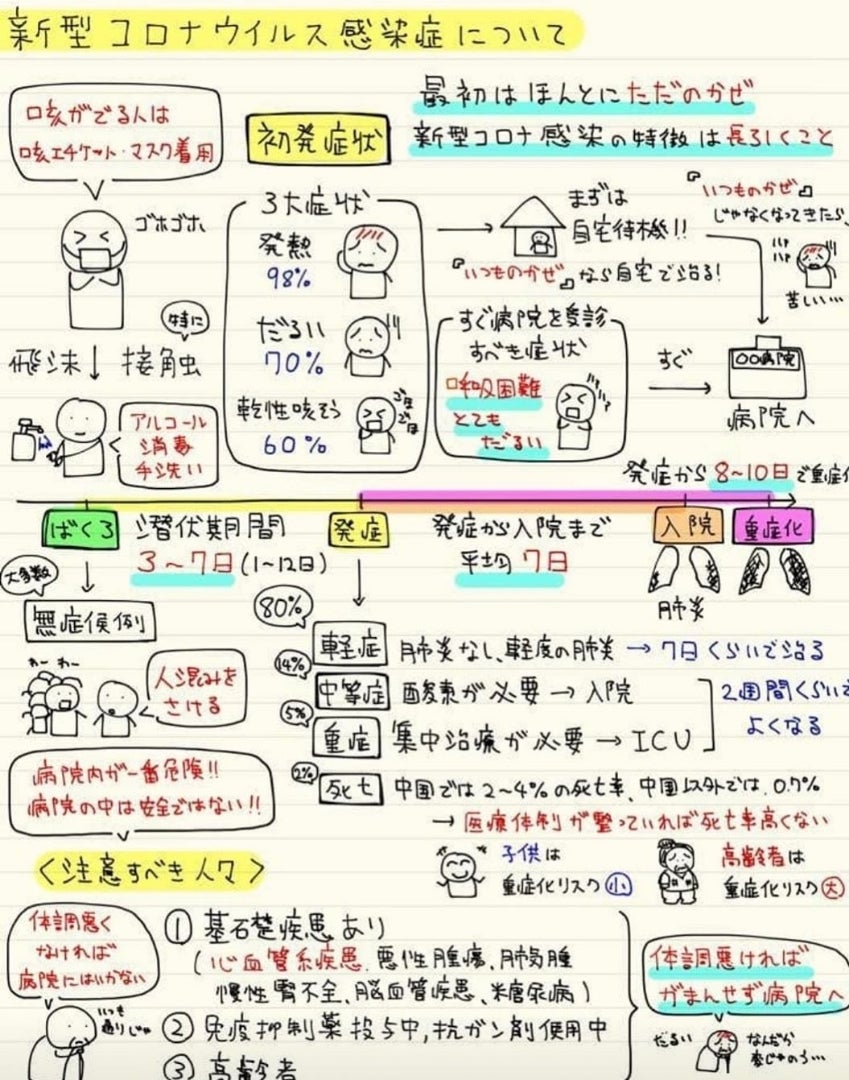 新型コロナウイルス感染症について
最初はほんとにただのかぜ
新型コロナ感染の特徴は長引くこと
咳がでる人は
咳エチケット・マスク着用
初発症状
ゴホゴホ
3大症状
発熱
98%
だるい
70%
乾性咳そう
60%
ごほ
ごほ
まずは
自宅待機!!
『いつものかぜ』なら自宅で治る!
『いつものかぜ』
じゃなくなってきたら
ハァ
ハァ
苦しい…
すぐ病院を受診
すべき症状
呼吸困難
とても
だるい
すぐ
〇〇病院
病院へ
特に
飛沫↓接触
アルコール
消毒
手洗い
発症から8~10日で重症化
ばくろ
潜伏期間
3~7日(1~12日)
発症
発症から入院まで
平均7日
入院
重症化
肺炎
大多数
無症候例
わー わー
人混みを
さける
80%
軽症 肺炎なし、軽度の肺炎→7日くらいで治る
14%
中等症 酸素が必要→入院
5%
重症 集中治療が必要→ICU
2週間くらいで
よくなる
2%
死亡 中国では2~4%の死亡率、中国以外では0.7%
→医療体制が整っていれば死亡率高くない
病院内が一番危険!!
病院の中は安全ではない!!
子供は
重症化リスク小
高齢者は
重症化リスク大
<注意すべき人々>
体調悪く
なければ
病院にはいかない
いつも
通りじゃ
①基礎疾患あり
(心血管系疾患、悪性腫瘍、肺気腫
慢性腎不全、脳血管疾患、糖尿病)
②免疫抑制薬投与中,抗ガン剤使用中
③高齢者
体調悪ければ
がまんせず病院へ
だるい
なんだか
変じゃのう…